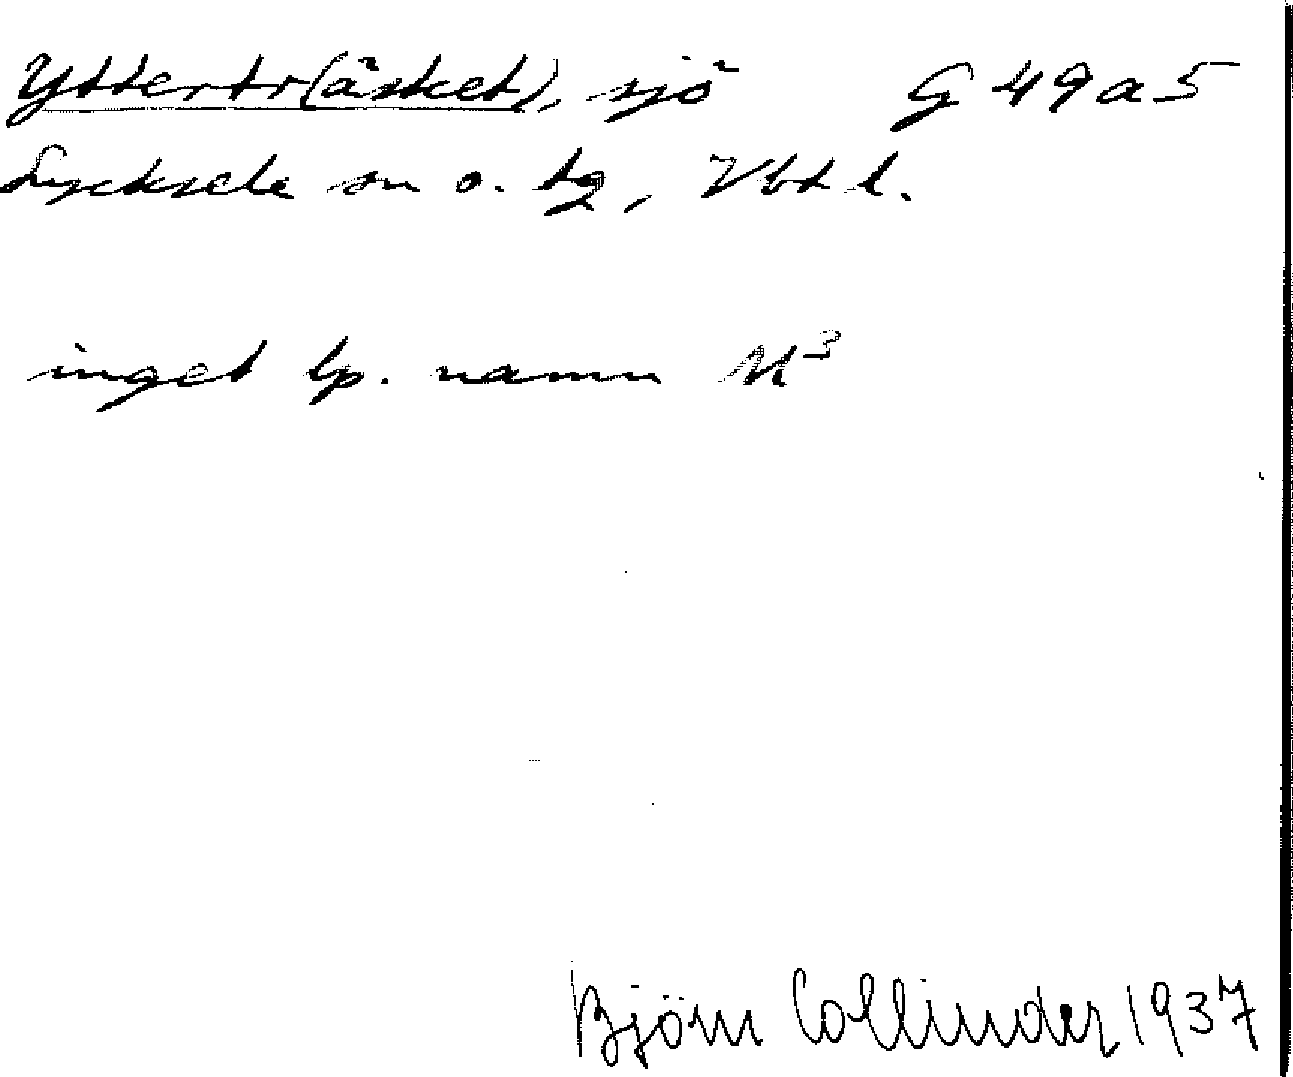 Yttertr(äsket), sjö G 49 a 5
Lycksele sn o. tg, Vbt l.
inget lp. namn M³
Björn Collinder 1937